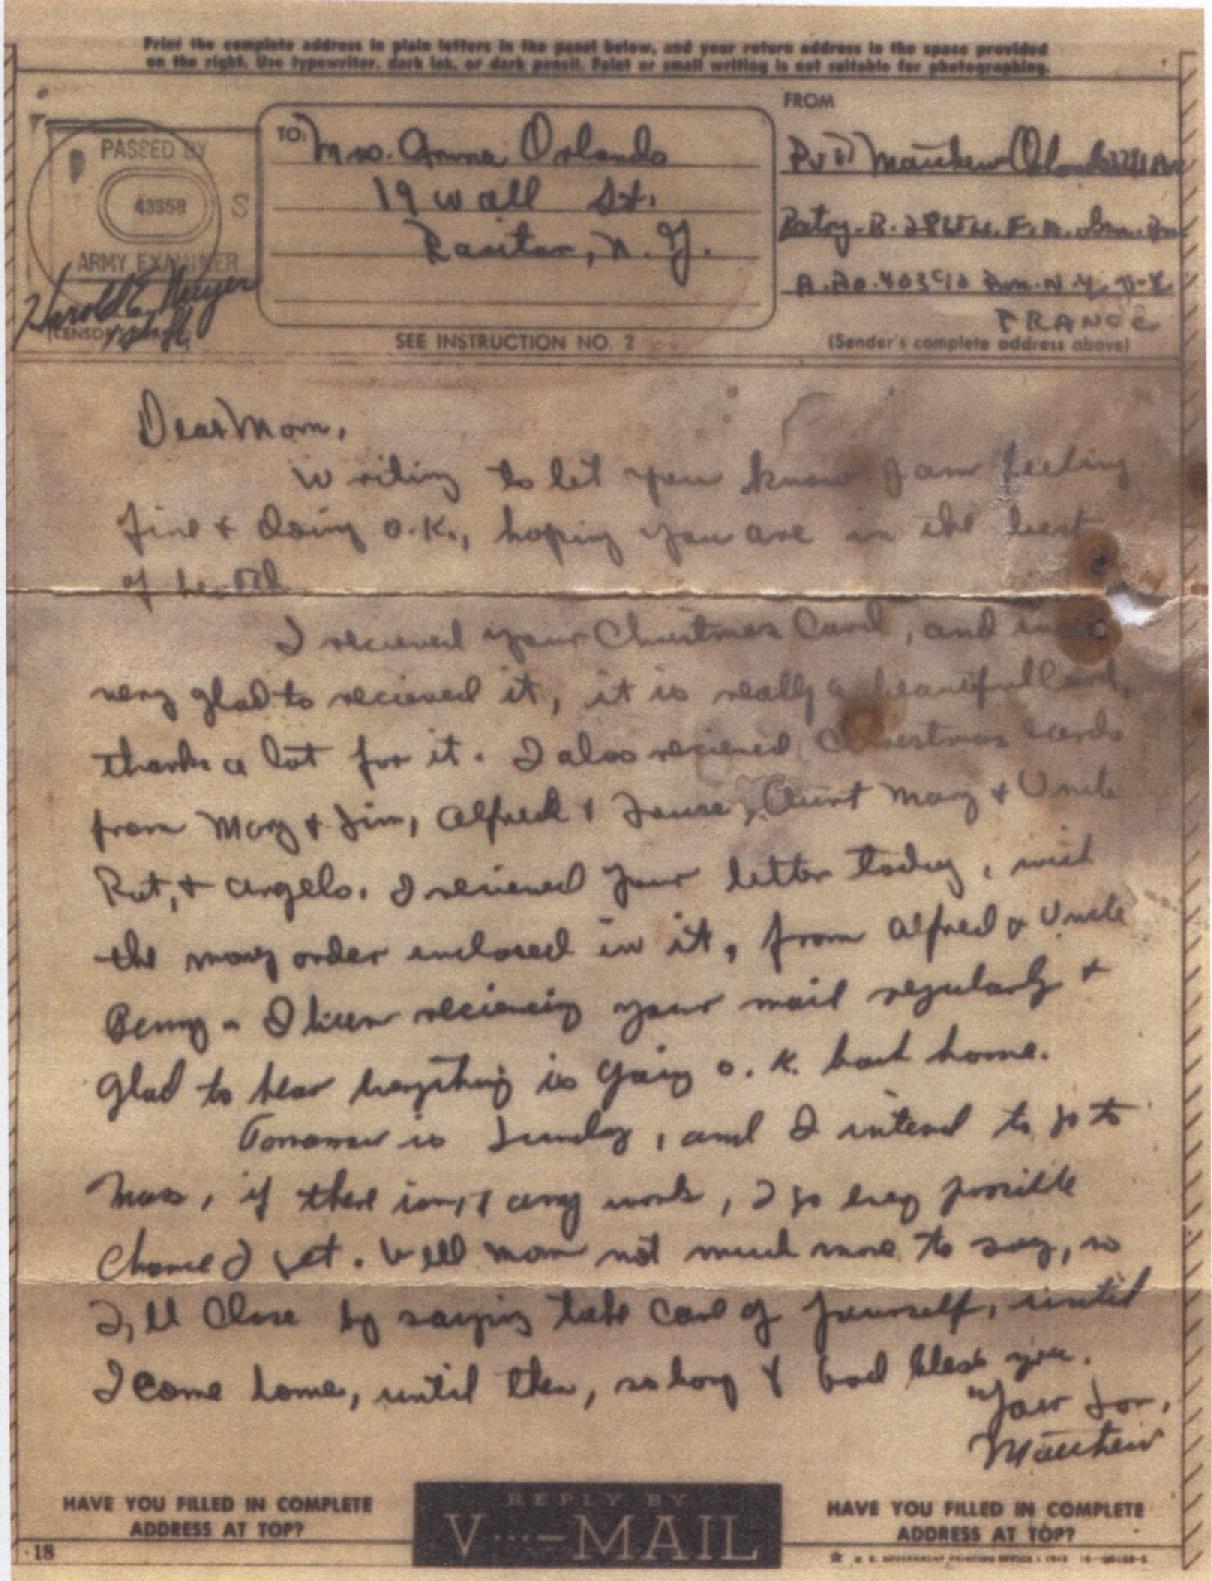 Print the complete address in plain letters in the panel below, and your return address in the space provided
on the right. Use typewriter, dark ink, or dark pencil. Faint or small writing is not suitable for photographing.
PASSED BY
43358
S
ARMY EXAMINER
Harold E.
TO:
Mrs. Anna Orlando
19 Wall St.
Raritan, N. J.
SEE INSTRUCTION NO. 2
FROM
Pvt Matthew Orlando
Batry. B. F. A.
A.P.O. 403 N.Y. N.Y.
FRANCE
(Sender's complete address above)
Dear Mom,
Writing to let you know I am feeling
fine & doing O.K., hoping you are in the best
of health
I recieved your Christmas Card, and
very glad to recieved it, it is really a beautiful Card,
thanks a lot for it. I also recieved Christmas cards
from Mary & Jim, Alfred & Aunt Mary & Uncle
& Angelo. I recieved your letter today,
the money order enclosed in it, from Alfred & Uncle
Benny. I been recieving your mail regularly &
glad to hear everything is going O.K. back home.
Tomorrow is Sunday, and I intend to go to
Mass, if there isn,t any work, I go every possible
chance I get. Well Mom not much more to say, so
I,ll Close by saying take care of yourself, until
I come home, until then, so long & God bless you.
Your Son,
Matthew
HAVE YOU FILLED IN COMPLETE
ADDRESS AT TOP?
REPLY BY
V···—MAIL
HAVE YOU FILLED IN COMPLETE
ADDRESS AT TOP?
18
U. S. GOVERNMENT PRINTING OFFICE : 1943